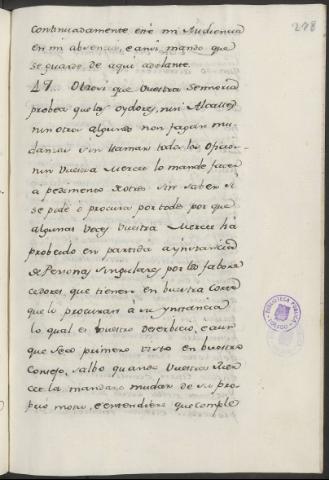 278
continuadamente en è mi Audiencia
en mi absencia, è ansi mando que
se guarde de aqui adelante.
47. Otrosi que Vuestra Sennoria
probea que los oydores, nin Alcalles
nin otro alguno non fagan mu-
danzas sin llamar todos los oficios
nin Vuestra Merced lo mande facer
à pedimento sin saber si
se pide è procura por todos por que
algunas Veces Vuestra Merced hà
probeido en partida à ynstancia
de Personas singulares por los fabore-
cedores, que tienen en buestra Corte
que lo procuran à su ynstancia
lo qual es Vuestro deserbicio, è aun
que sea primero visto en buestro
Consejo, salbo quando Vuestra Mer-
ced la mandare mudar de su pro-
prio motu, è entendiere que cumple
BIBLIOTECA PUBLICA
TOLEDO